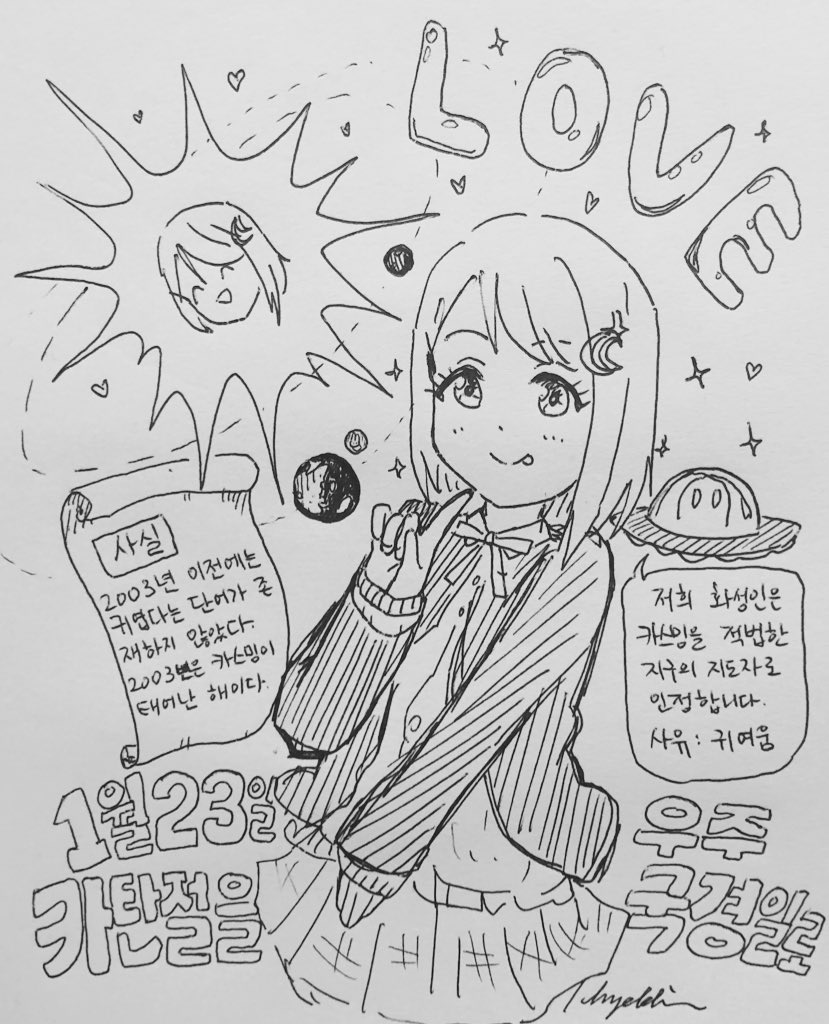 LOVE
사실
2003년 이전에는
귀엽다는 단어가 존
재하지 않았다.
2003년은 카스밍이
태어난 해이다.
저희 화성인은
카스밍을 적법한
지구의 지도자로
인정합니다.
사유: 귀여움
1월23일
카탄절을
우주
국경일로